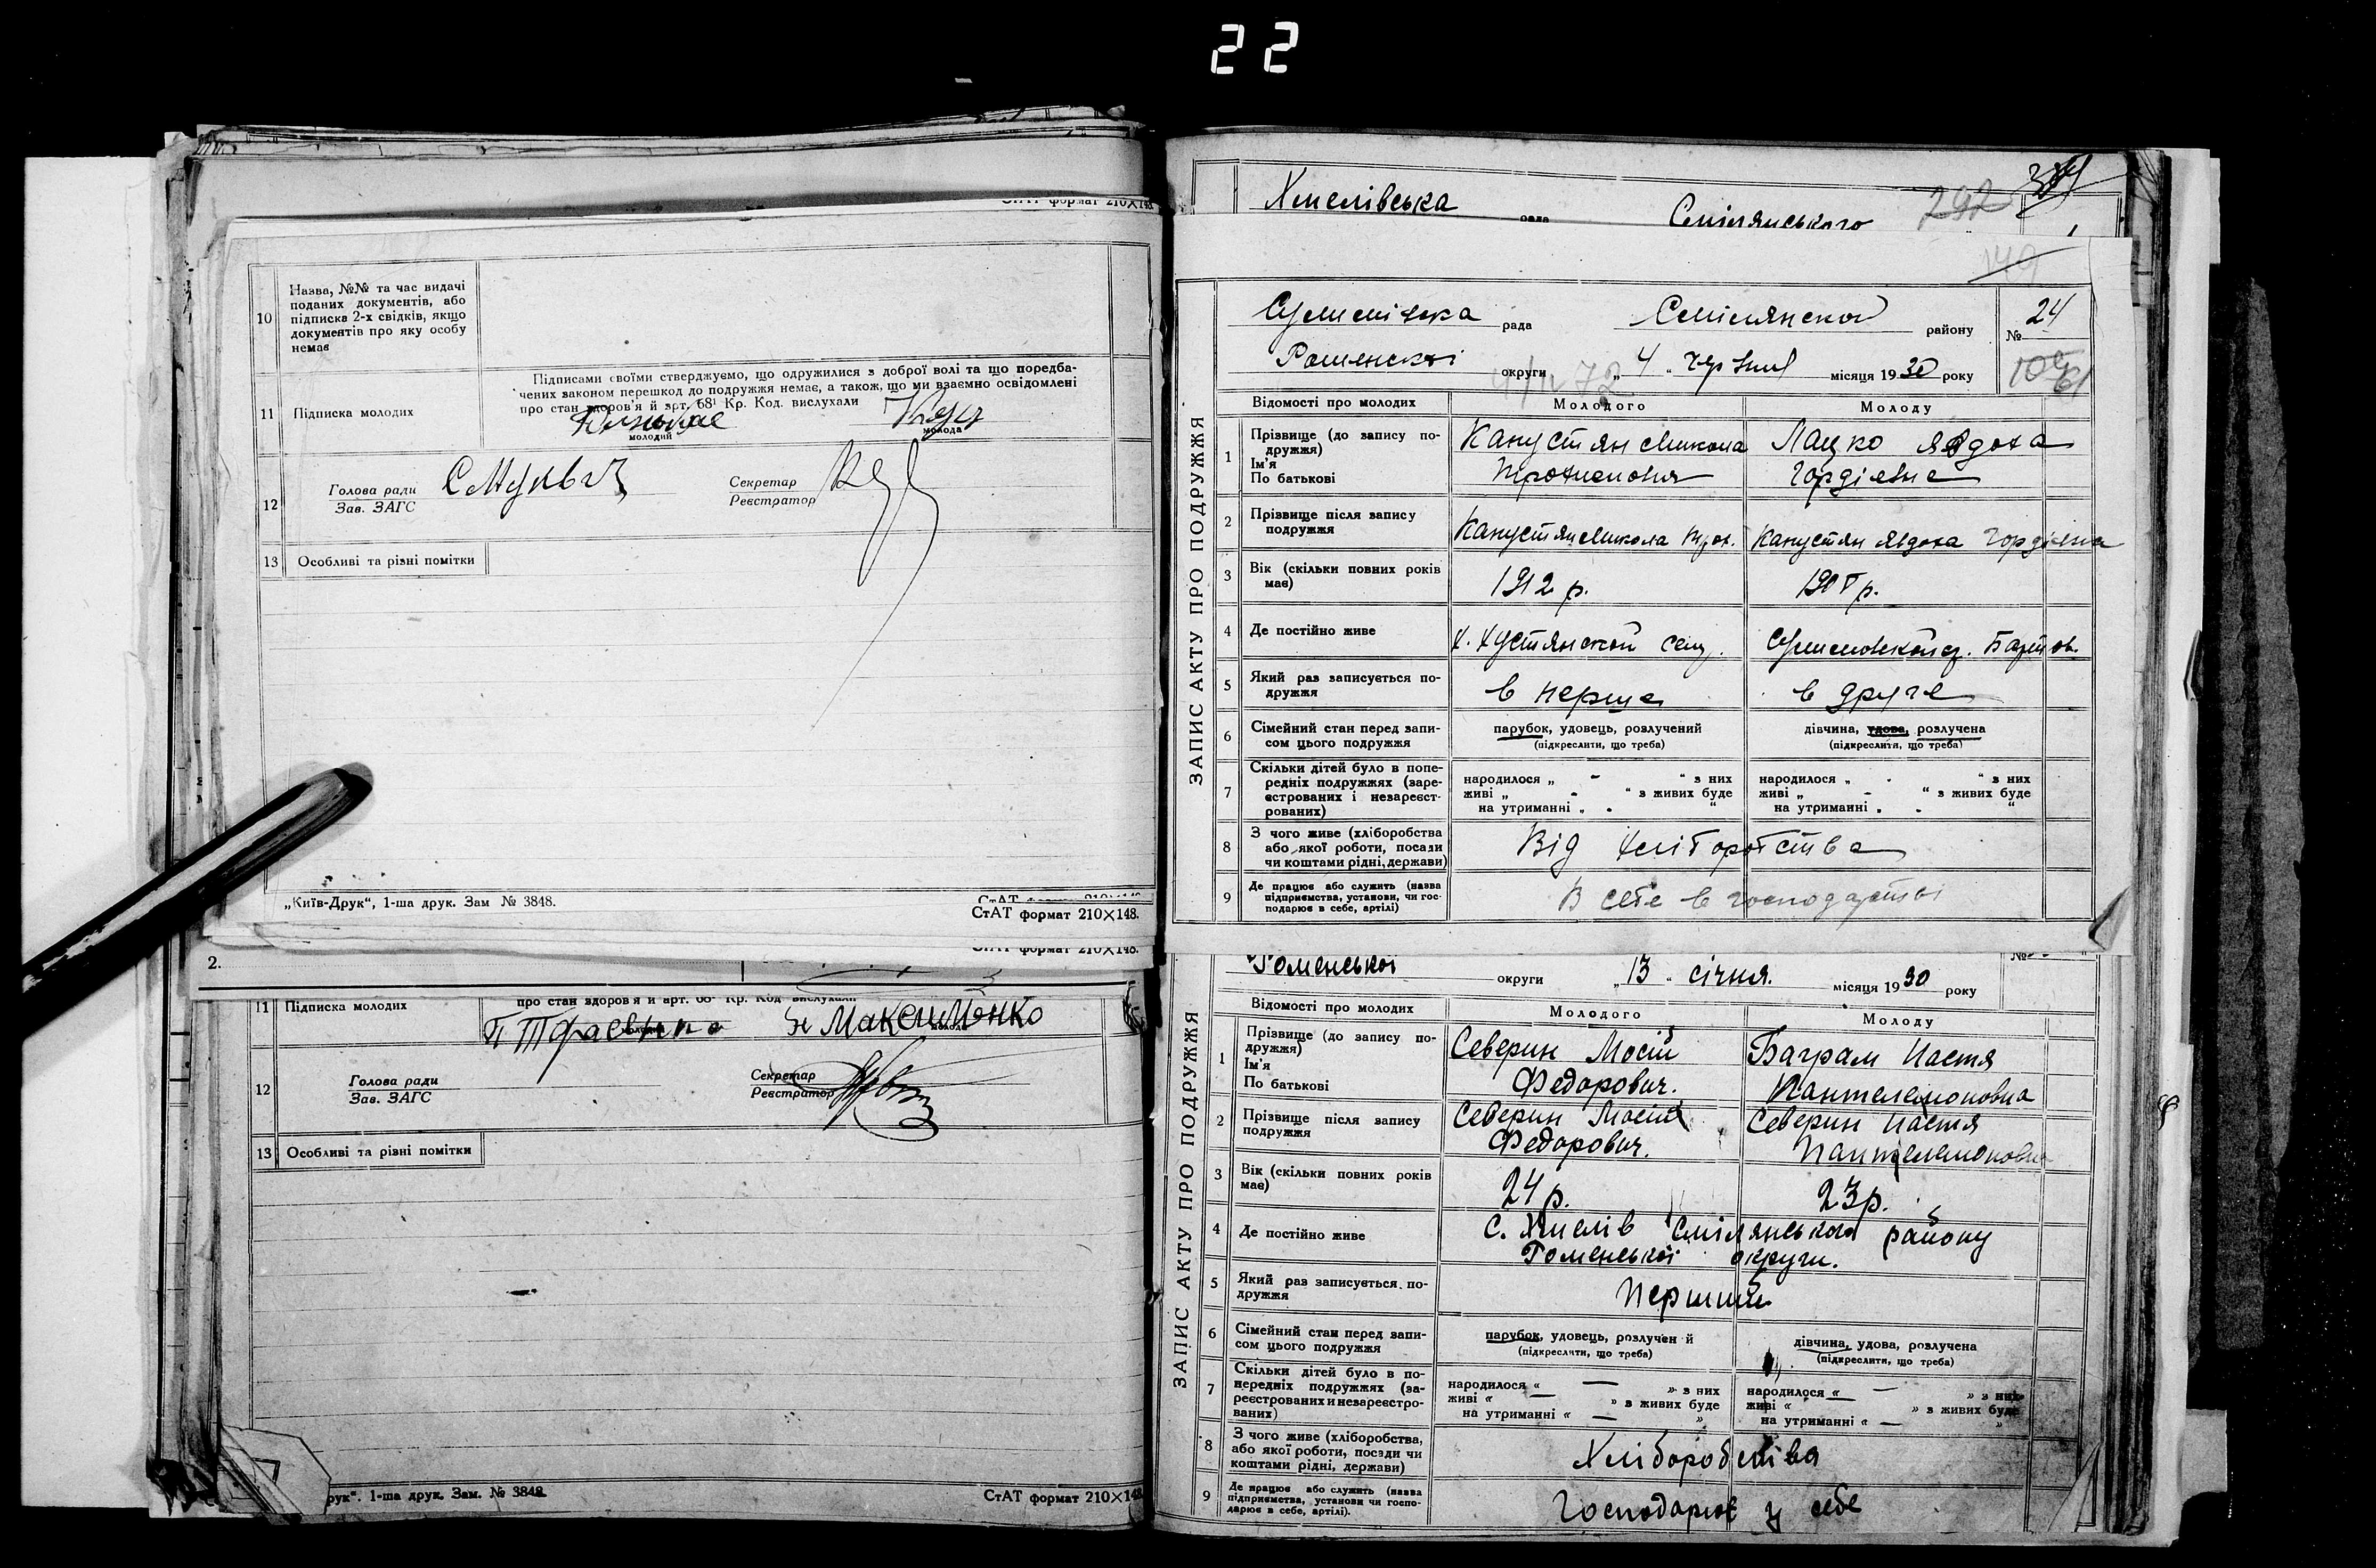 22
СтАТ формат 210×148.
10
Назва, №№ та час видачі
поданих документів, або
підписка 2-х свідків, якщо
документів про яку особу
немає
Підписами своїми стверджуємо, що одружилися з доброї волі та що поредба-
чених законом перешкод до подружжя немає, а також, що ми взаємно освідомлені
про стан здоров'я й арт. 68¹ Кр. Код. вислухали
11 Підписка молодих
молодий молода
12
Голова ради
Зав. ЗАГС
Секретар
Реєстратор
13 Особливі та різні помітки
„Київ-Друк“, 1-ша друк. Зам № 3848.
СтАТ формат 210×148.
СтАТ формат 210×148.
2.
про стан здоров'я й арт. 68¹ Кр. Код вислухали
11 Підписка молодих
Максименко
12
Голова ради
Зав. ЗАГС
Секретар
Реєстратор
13 Особливі та різні помітки
рук“. 1-ша друк. Зам. № 3848.
СтАТ формат 210×148
Хмелівська рада Смілянського
292
149
рада Смілянской району
№ 24
Роменскої округи „4“ місяця 1930 року
ЗАПИС АКТУ ПРО ПОДРУЖЖЯ
Відомості про молодих Молодого Молоду
1
Прізвище (до запису по-
дружжя)
Ім'я
По батькові
Капустян Микола
Трохимович
Лацко Явдоха
Гордіевна
2
Прізвище після запису
подружжя
Капустян Микола Трох. Капустян Явдоха Гордіевна
3
Вік (скільки повних років
має)
1912 р.
4 Де постійно живе
5
Який раз записується по-
дружжя
в перше в друге
6
Сімейний стан перед запи-
сом цього подружжя
парубок, удовець, розлучений
(підкреслити, що треба)
дівчина, удова, розлучена
(підкреслити, що треба)
7
Скільки дітей було в попе-
редніх подружжях (заре-
єстрованих і незареєст-
рованих)
народилося „ - “ з них
живі „ - “ з живих буде
на утриманні „ - “
народилося „ - “ з них
живі „ - “ з живих буде
на утриманні „ - “
8
З чого живе (хліборобства
або якої роботи, посади
чи коштами рідні, держави)
Від хліборобства
9
Де працює або служить (назва
підприємства, установи, чи гос-
подарює в себе, артілі)
В себе в господарстві
Роменської округи „13“ січня. місяця 1930 року
№
ЗАПИС АКТУ ПРО ПОДРУЖЖЯ
Відомості про молодих Молодого Молоду
1
Прізвище (до запису по-
дружжя)
Ім'я
По батькові
Северин Мосій
Федорович.
Баграм Настя
Пантелемоновна
2
Прізвище після запису
подружжя
Северин Мосій
Федорович.
Северин Настя
Пантелемоновна
3
Вік (скільки повних років
має)
24 р. 23 р.
4 Де постійно живе
С. Хмелів Смілянського району
Роменської округи.
5
Який раз записується по-
дружжя
Перший
6
Сімейний стан перед запи-
сом цього подружжя
парубок, удовець, розлучен й
(підкреслити, що треба)
дівчина, удова, розлучена
(підкреслити, що треба)
7
Скільки дітей було в по-
передніх подружжях (за-
реєстрованих и незареєстро-
ваних)
народилося « — » з них
живі « — » з живих буде
на утриманні « — »
народилося « — » з них
живі « — » з живих буде
на утриманні « — »
8
З чого живе (хліборобства,
або якої роботи, посади чи
коштами рідні, держави)
Хліборобства
9
Де працює або служить (назва
підприємства, установи чи госпо-
дарює в себе, артілі).
Господарює у себе